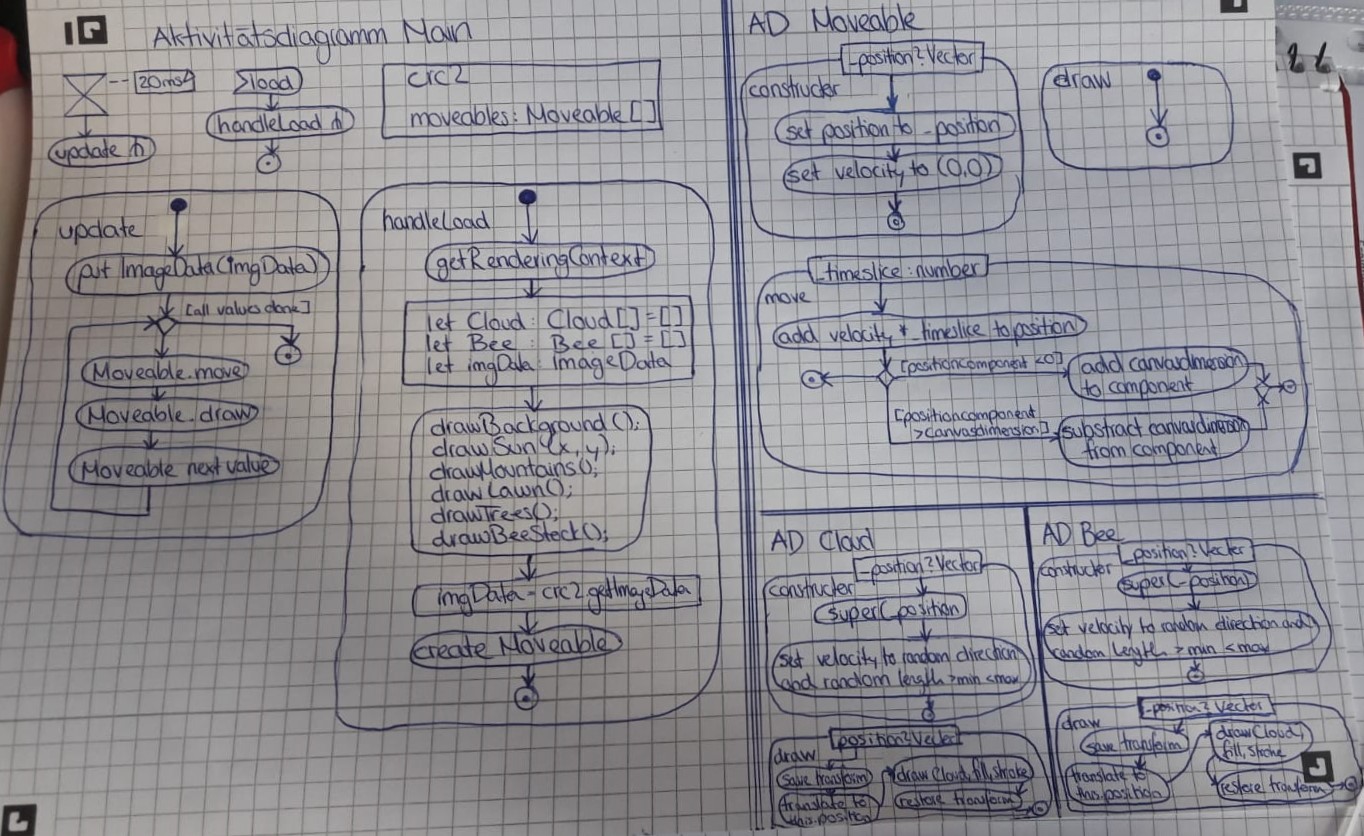 Aktivitätsdiagramm Main
20ms
load
handleLoad
update
crc2
moveables: Moveable []
update
put ImageData(imgData)
[all values done]
Moveable.move
Moveable.draw
Moveable next value
handleLoad
getRenderingContext
let Cloud: Cloud[] = []
let Bee: Bee [] = []
let imgData: ImageData
drawBackground();
drawSun(x, y);
drawMountains();
drawLawn();
drawTrees();
drawBeeStock();
imgData = crc2.getImageData
create Moveable
AD Moveable
_position?:Vector
constructer
set position to _position
set velocity to (0,0)
draw
_timeslice: number
move
add velocity * _timeslice to position
[positioncomponent <0]
add canvasdimension
to component
[positioncomponent
>canvasdimension]
substract canvasdimension
from component
AD Cloud
_position?:Vector
constructer
super(_position)
set velocity to random direction
and random length >min <max
_position?:Vector
draw
save transform
translate to
this.position
draw Cloud, fill, stroke
restore transform
AD Bee
_position?:Vector
constructer
super(_position)
set velocity to random direction and
random length >min <max
_position?:Vector
draw
save transform
translate to
this.position
draw Cloud,
fill, stroke
restore transform